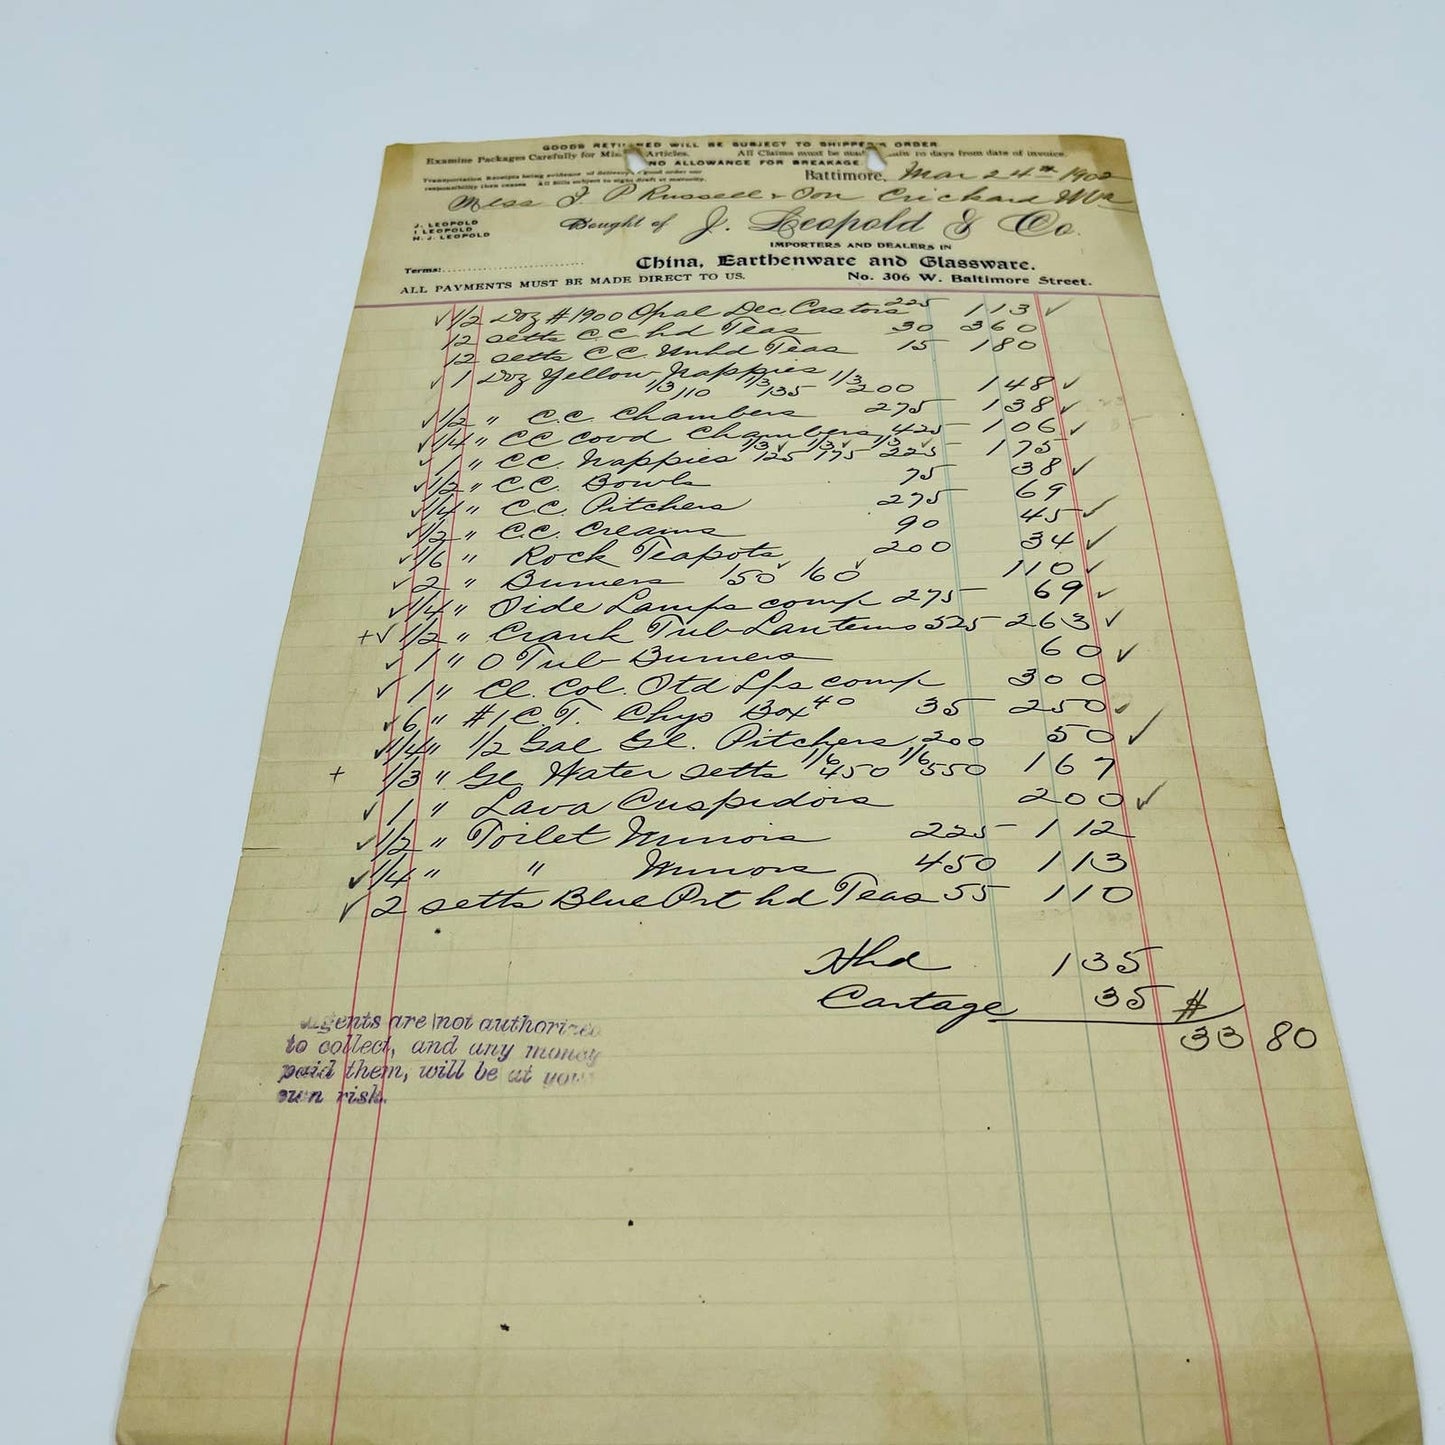 GOODS RETURNED WILL BE SUBJECT TO SHIPPER'S ORDER.
Examine Packages Carefully for Articles. All Claims must be made 10 days from date of invoice.
NO ALLOWANCE FOR BREAKAGE
Transportation Receipts being evidence of delivery good order our
responsibility then ceases All Bills subject to sight draft at maturity.
Baltimore, Mar 24th 1902
Mess J. P Russell & Son Crichard
J. LEOPOLD
I LEOPOLD
H. J. LEOPOLD
Bought of J. Leopold & Co.
IMPORTERS AND DEALERS IN
Terms:
China, Earthenware and Glassware.
ALL PAYMENTS MUST BE MADE DIRECT TO US. No. 306 W. Baltimore Street.
✓ 1/2 Doz #1900 Opal Dec Castors 225 113 ✓
12 setts C.C. hd Teas 30 360
12 setts C.C. Unhd Teas 15 180
✓ 1 Doz Yellow Nappies 1/3 110 1/3 135 1/3 200 148 ✓
✓ 1/2 " C.C. Chambers 275 138 ✓
✓ 1/4 " CC Covd Chambers 425 106 ✓
✓ 1 " CC. Nappies 1/3 125 1/3 175 1/3 225 175
✓ 1/2 " C.C. Bowls 75 38 ✓
✓ 1/4 " C.C. Pitchers 275 69
✓ 1/2 " C.C. Creams 90 45 ✓
✓ 1/6 " Rock Teapots 200 34 ✓
✓ 2 " Burners 150 160 110 ✓
✓ 1/4 " Side Lamps comp 275 69 ✓
+ ✓ 1/2 " Crank Tub Lanterns 525 263 ✓
✓ 1 " O Tub Burners 60 ✓
✓ 1 " Cl. Col. Std Lps comp 300
✓ 6 " #1 C.T. Chys Box 40 35 250 ✓
✓ 1/4 " 1/2 Gal Gl. Pitchers 200 50 ✓
+ 1/3 " Gl Water setts 1/6 450 1/6 550 167
✓ 1 " Lava Cuspidors 200 ✓
✓ 1/2 " Toilet Mirrors 225 112
✓ 1/4 " " Mirrors 450 113
✓ 2 setts Blue Prt hd Teas 55 110
Hhd 135
Cartage 35 #
33 80
Agents are not authorized
to collect, and any money
paid them, will be at your
own risk.